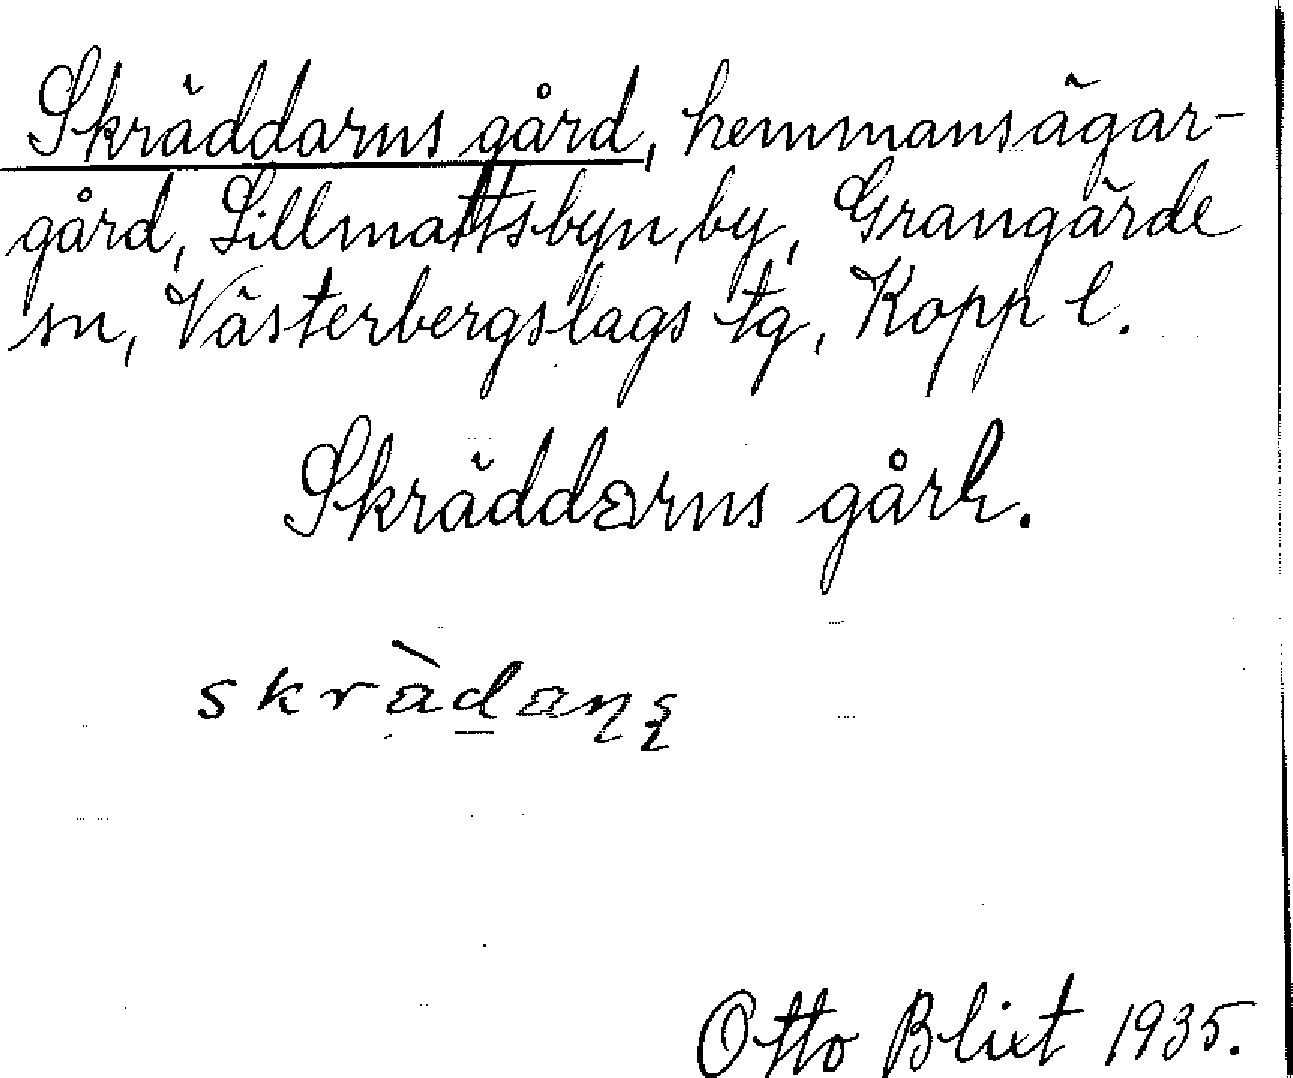 Skräddarns gård, hemmansägar-
gård, Lillmattsbyn, by, Grangärde
sn, Västerbergslags tg, Kopp l.
Skräddarns gård.
skràdaņş
Otto Blixt 1935.